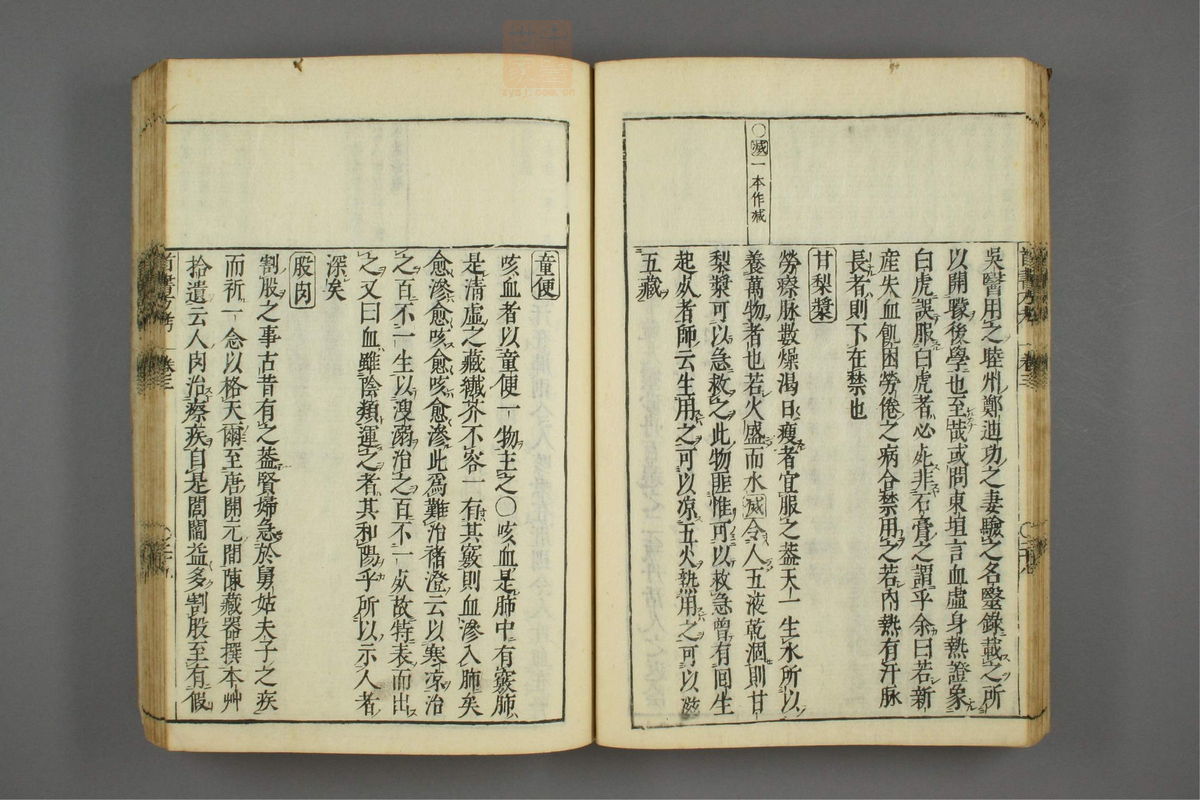 吳醫用之睦州鄭迪功之妻驗之名醫錄載之所
以開矇後學也至哉或問東垣言血虛身熱證象
白虎誤服白虎者必死非石膏之謂乎余曰若新
產失血飢困勞倦之病合禁用之若內熱有汗脉
長者則不在禁也
甘梨漿
勞瘵脉數燥渴日瘦者宜服之蓋天一生水所以
養萬物者也若火盛而水烕令人五液乾涸則甘
〇烕一本作減
梨漿可以急救之此物匪惟可以救急曾有回生
起死者師云生用之可以凉五火熟用之可以滋
五藏
童便
咳血者以童便一物主之〇咳血是肺中有竅肺
是清虛之藏纎芥不容一有其竅則血滲入肺矣
愈滲愈咳愈咳愈滲此爲難治褚澄云以寒凉治
之百不一生以溲溺治之百不一死故特表而出
之又曰血雖陰類運之者其和陽乎所以示人者
深矣
股肉
割股之事古昔有之葢賢婦急於舅姑夫子之疾
而祈一念以格天爾至唐開元間陳藏器撰本艸
拾遺云人肉治瘵疾自是閭閻益多割股至有假
首書方考
卷三
首書方考
卷三